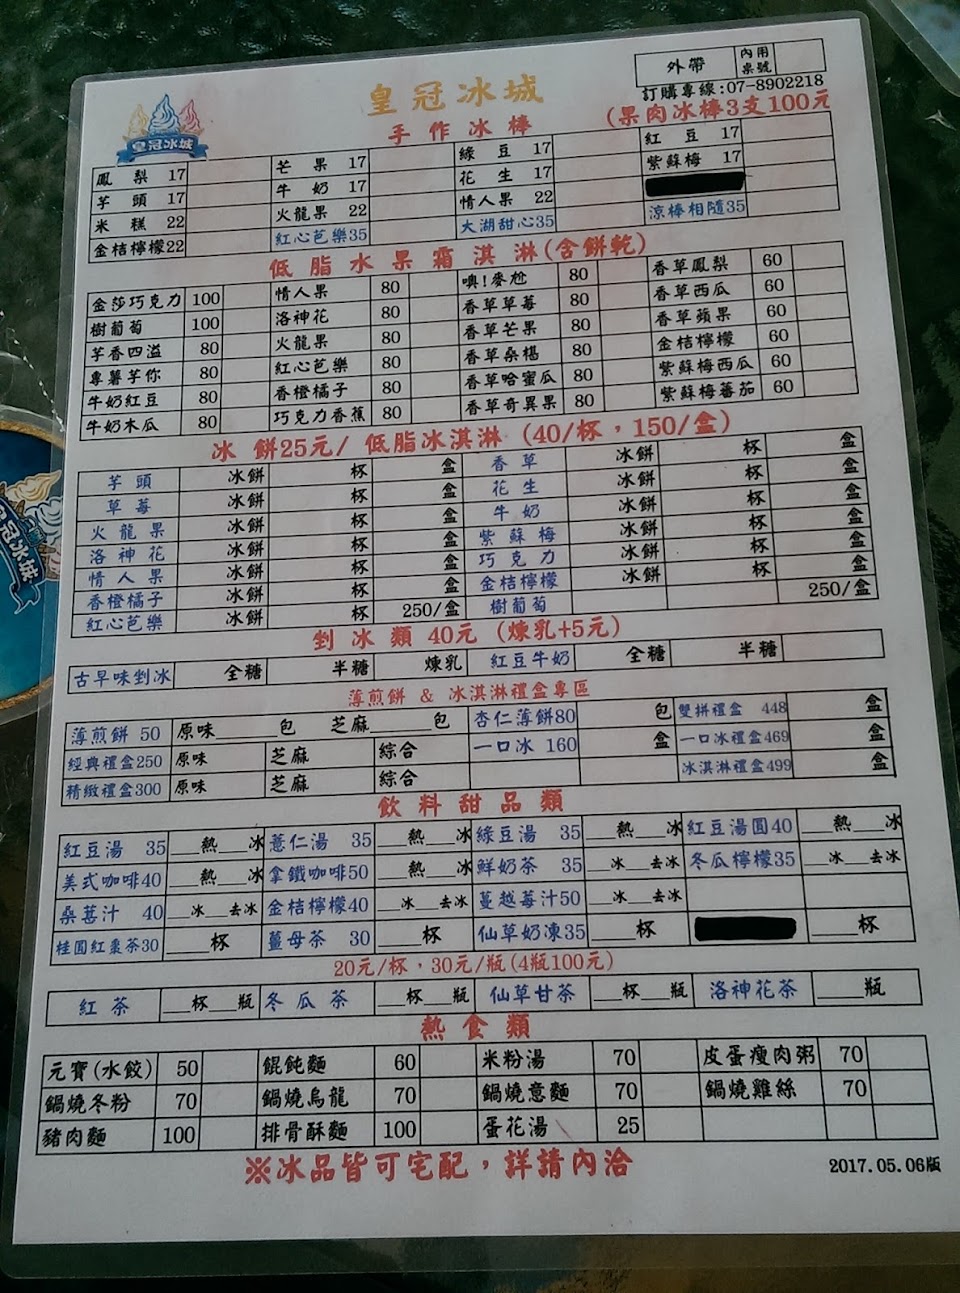 外帶 內用桌號
皇冠冰城
訂購專線:07-8902218
皇冠冰城
手作冰棒 (果肉冰棒3支100元
鳳梨 17 芒果 17 綠豆 17 紅豆 17
芋頭 17 牛奶 17 花生 17 紫蘇梅 17
米糕 22 火龍果 22 情人果 22
金桔檸檬22 紅心芭樂35 大湖甜心35 涼棒相隨35
低脂水果霜淇淋(含餅乾)
金莎巧克力 100 情人果 80 噢!麥尬 80 香草鳳梨 60
樹葡萄 100 洛神花 80 香草草莓 80 香草西瓜 60
芋香四溢 80 火龍果 80 香草芒果 80 香草蘋果 60
專薯芋你 80 紅心芭樂 80 香草桑椹 80 金桔檸檬 60
牛奶紅豆 80 香橙橘子 80 香草哈蜜瓜 80 紫蘇梅西瓜 60
牛奶木瓜 80 巧克力香蕉 80 香草奇異果 80 紫蘇梅蕃茄 60
冰餅25元/ 低脂冰淇淋 (40/杯,150/盒)
芋頭 冰餅 杯 盒 香草 冰餅 杯 盒
草莓 冰餅 杯 盒 花生 冰餅 杯 盒
火龍果 冰餅 杯 盒 牛奶 冰餅 杯 盒
洛神花 冰餅 杯 盒 紫蘇梅 冰餅 杯 盒
情人果 冰餅 杯 盒 巧克力 冰餅 杯 盒
香橙橘子 冰餅 杯 盒 金桔檸檬 冰餅 杯 盒
紅心芭樂 冰餅 杯 250/盒 樹葡萄 250/盒
剉冰類 40元 (煉乳+5元)
古早味剉冰 全糖 半糖 煉乳 紅豆牛奶 全糖 半糖
薄煎餅 & 冰淇淋禮盒專區
薄煎餅 50 原味_____包 芝麻_____包 杏仁薄餅80 包 雙拼禮盒 448 盒
經典禮盒250 原味 芝麻 綜合 一口冰 160 盒 一口冰禮盒469 盒
精緻禮盒300 原味 芝麻 綜合 冰淇淋禮盒499 盒
飲料甜品類
紅豆湯 35 __熱__冰 薏仁湯 35 __熱__冰 綠豆湯 35 __熱__冰 紅豆湯圓40 __熱__冰
美式咖啡40 __熱__冰 拿鐵咖啡50 __熱__冰 鮮奶茶 35 __冰__去冰 冬瓜檸檬35 __冰__去冰
桑葚汁 40 __冰__去冰 金桔檸檬40 __冰__去冰 蔓越莓汁50 __冰__去冰
桂圓紅棗茶30 ___杯 薑母茶 30 ___杯 仙草奶凍35 ___杯 ____杯
20元/杯,30元/瓶(4瓶100元)
紅茶 __杯__瓶 冬瓜茶 __杯__瓶 仙草甘茶 __杯__瓶 洛神花茶 ____瓶
熱食類
元寶(水餃) 50 餛飩麵 60 米粉湯 70 皮蛋瘦肉粥 70
鍋燒冬粉 70 鍋燒烏龍 70 鍋燒意麵 70 鍋燒雞絲 70
豬肉麵 100 排骨酥麵 100 蛋花湯 25
※冰品皆可宅配,詳請內洽
2017.05.06版